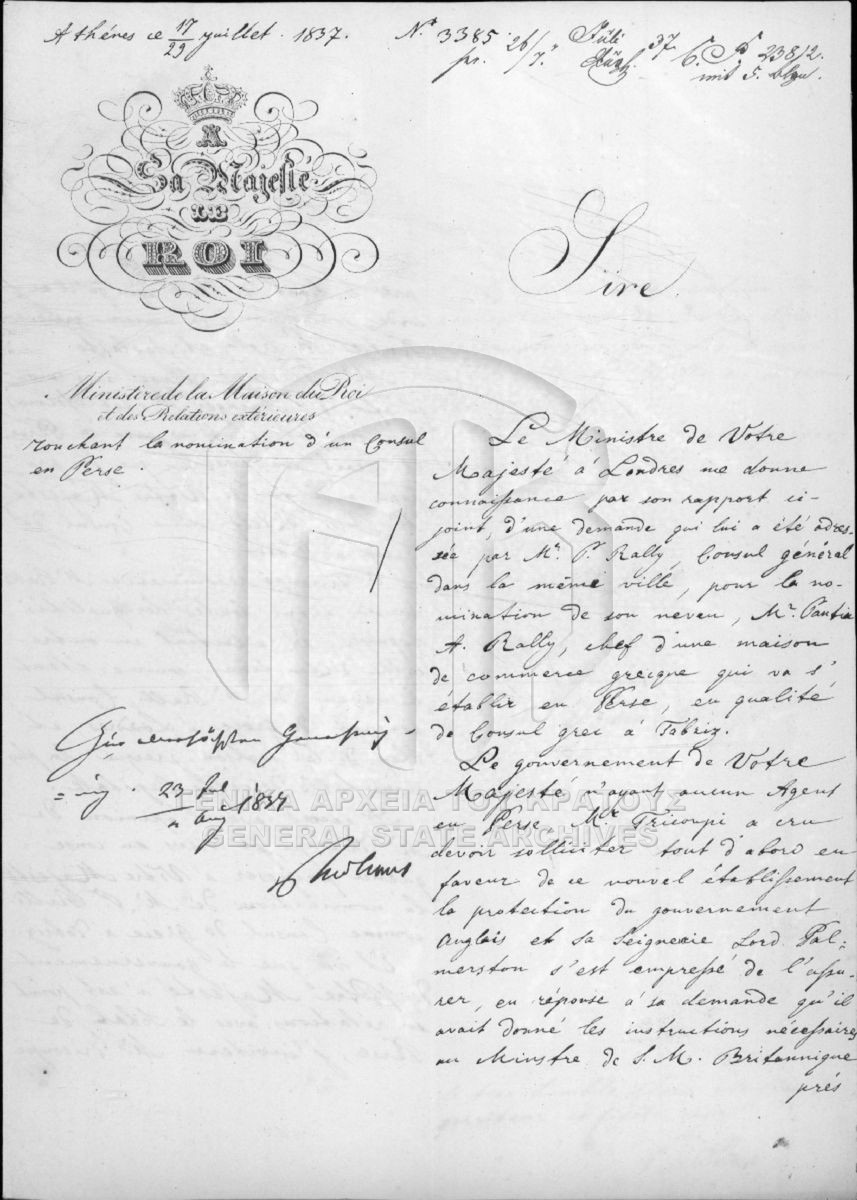 Athénes ce 17/29 juillet. 1837.
N° 3385
pr. 26/7.
37.
23812.
mit 5.
A
Sa Majesté
LE
ROI
Sire.
Ministère de la Maison du Roi
et des Relations extérieures
Touchant la nomination d'un Consul
en Perse.
Le Ministre de Votre
Majesté à Londres me donne
connaissance par son rapport ci-
joint, d'une demande qui lui a été adres-
sée par Mr. P. Rally, Consul général
dans la même ville, pour la no-
mination de son neveu, Mr. Pantia
A. Rally, chef d'une maison
de commerce grecque qui va s'
établir en Perse, en qualité
de Consul grec à Tabriz.
Le gouvernement de Votre
Majesté n'ayant aucun Agent
en Perse, Mr. Tricoupi a cru
devoir solliciter tout d'abord en
faveur de ce nouvel établissement
la protection du gouvernement
Anglais et sa Seigneurie Lord Pal-
merston s'est empressé de l'assu-
rer, en réponse à sa demande qu'il
avait donné les instructions nécessaires
au Minstre de S. M. Britannique
prés
23 Jul
Aug 1837
ΓΕΝΙΚΑ ΑΡΧΕΙΑ ΤΟΥ ΚΡΑΤΟΥΣ
GENERAL STATE ARCHIVES